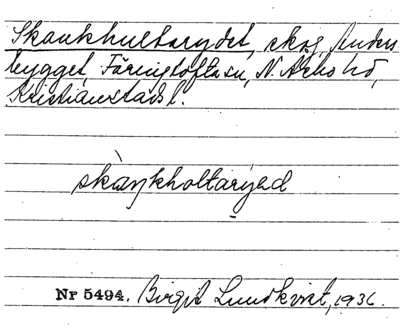 Skankhultarydet, skog, Anders
bygget, Färingtofta sn, N. Åsbo hd,
Kristianstads l.
skàŋkholtaryed
Nr 5494. Birgit Lundkvist, 1936.